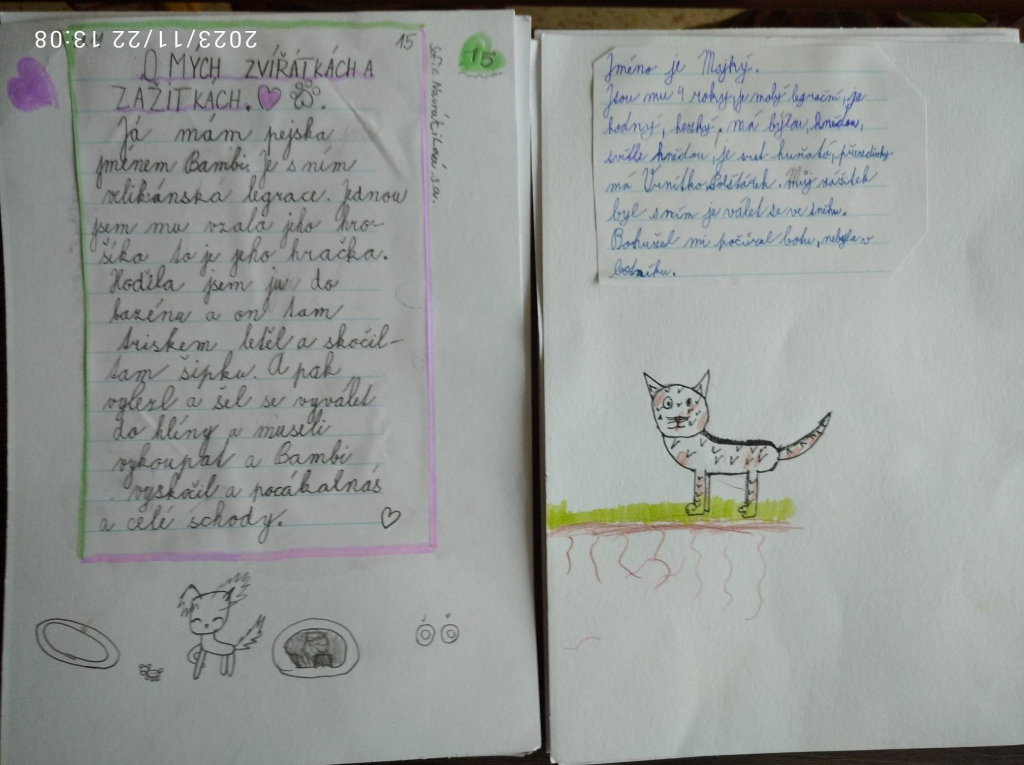 2023/11/22 13:08
15
O MYCH ZVÍŘÁTKÁCH A
ZÁŽITKÁCH.
Já mám pejska
jménem Bambi. Je s ním
velikánská legrace. Jednou
jsem mu vzala jeho hro-
šíka to je jeho hračka.
Hodila jsem ju do
bazénu a on tam
triskem letěl a skočil-
tam šipku. A pak
vylezl a šel se vyválet
do hlíny a museli
vykoupat a Bambi
vyskočil a pocákal nás
a celé schody.
15
Jméno je Majký.
Jsou mu 4 roky, je malý legrační, je
hodný, hezký. má býlou, hnědou,
světle hnědou, je srst huňatá, přezdívky
má Vrnítko, Polštářek. Můj zážitek
byl s ním je válet se ve sněhu.
Bohužel mi počůral botu, nebyla v
botníku.